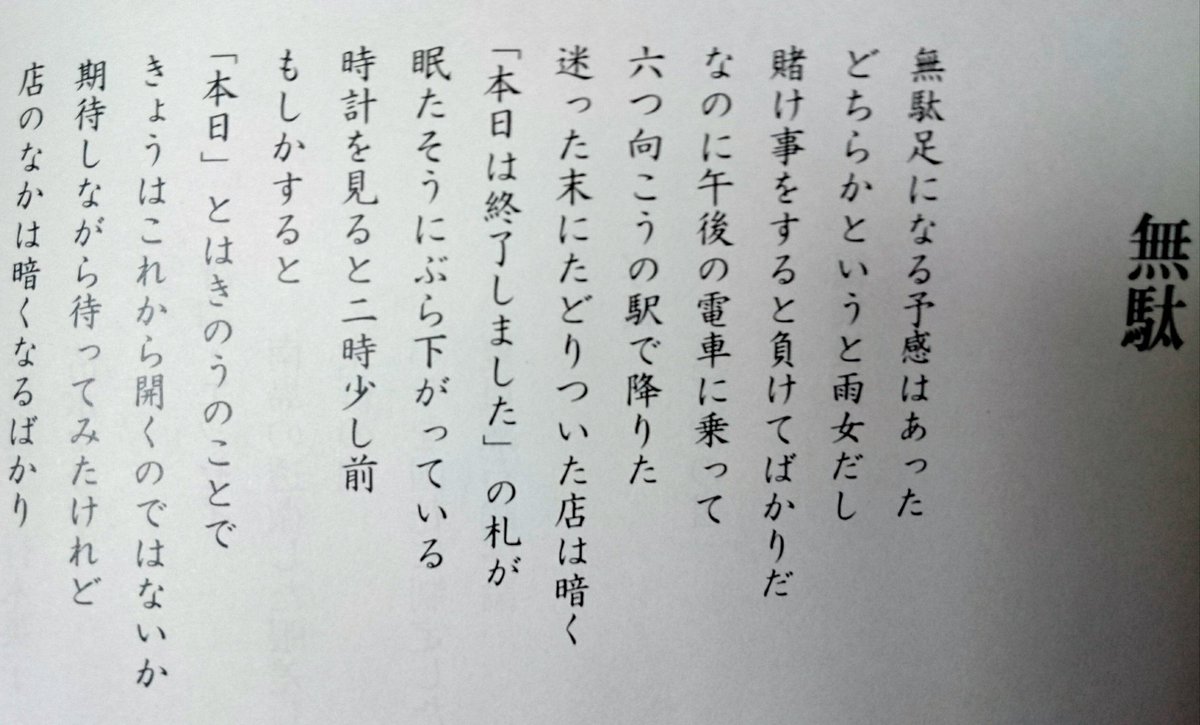 無駄
無駄足になる予感はあった
どちらかというと雨女だし
賭け事をすると負けてばかりだ
なのに午後の電車に乗って
六つ向こうの駅で降りた
迷った末にたどりついた店は暗く
「本日は終了しました」の札が
眠たそうにぶら下がっている
時計を見ると二時少し前
もしかすると
「本日」とはきのうのことで
きょうはこれから開くのではないか
期待しながら待ってみたけれど
店のなかは暗くなるばかり